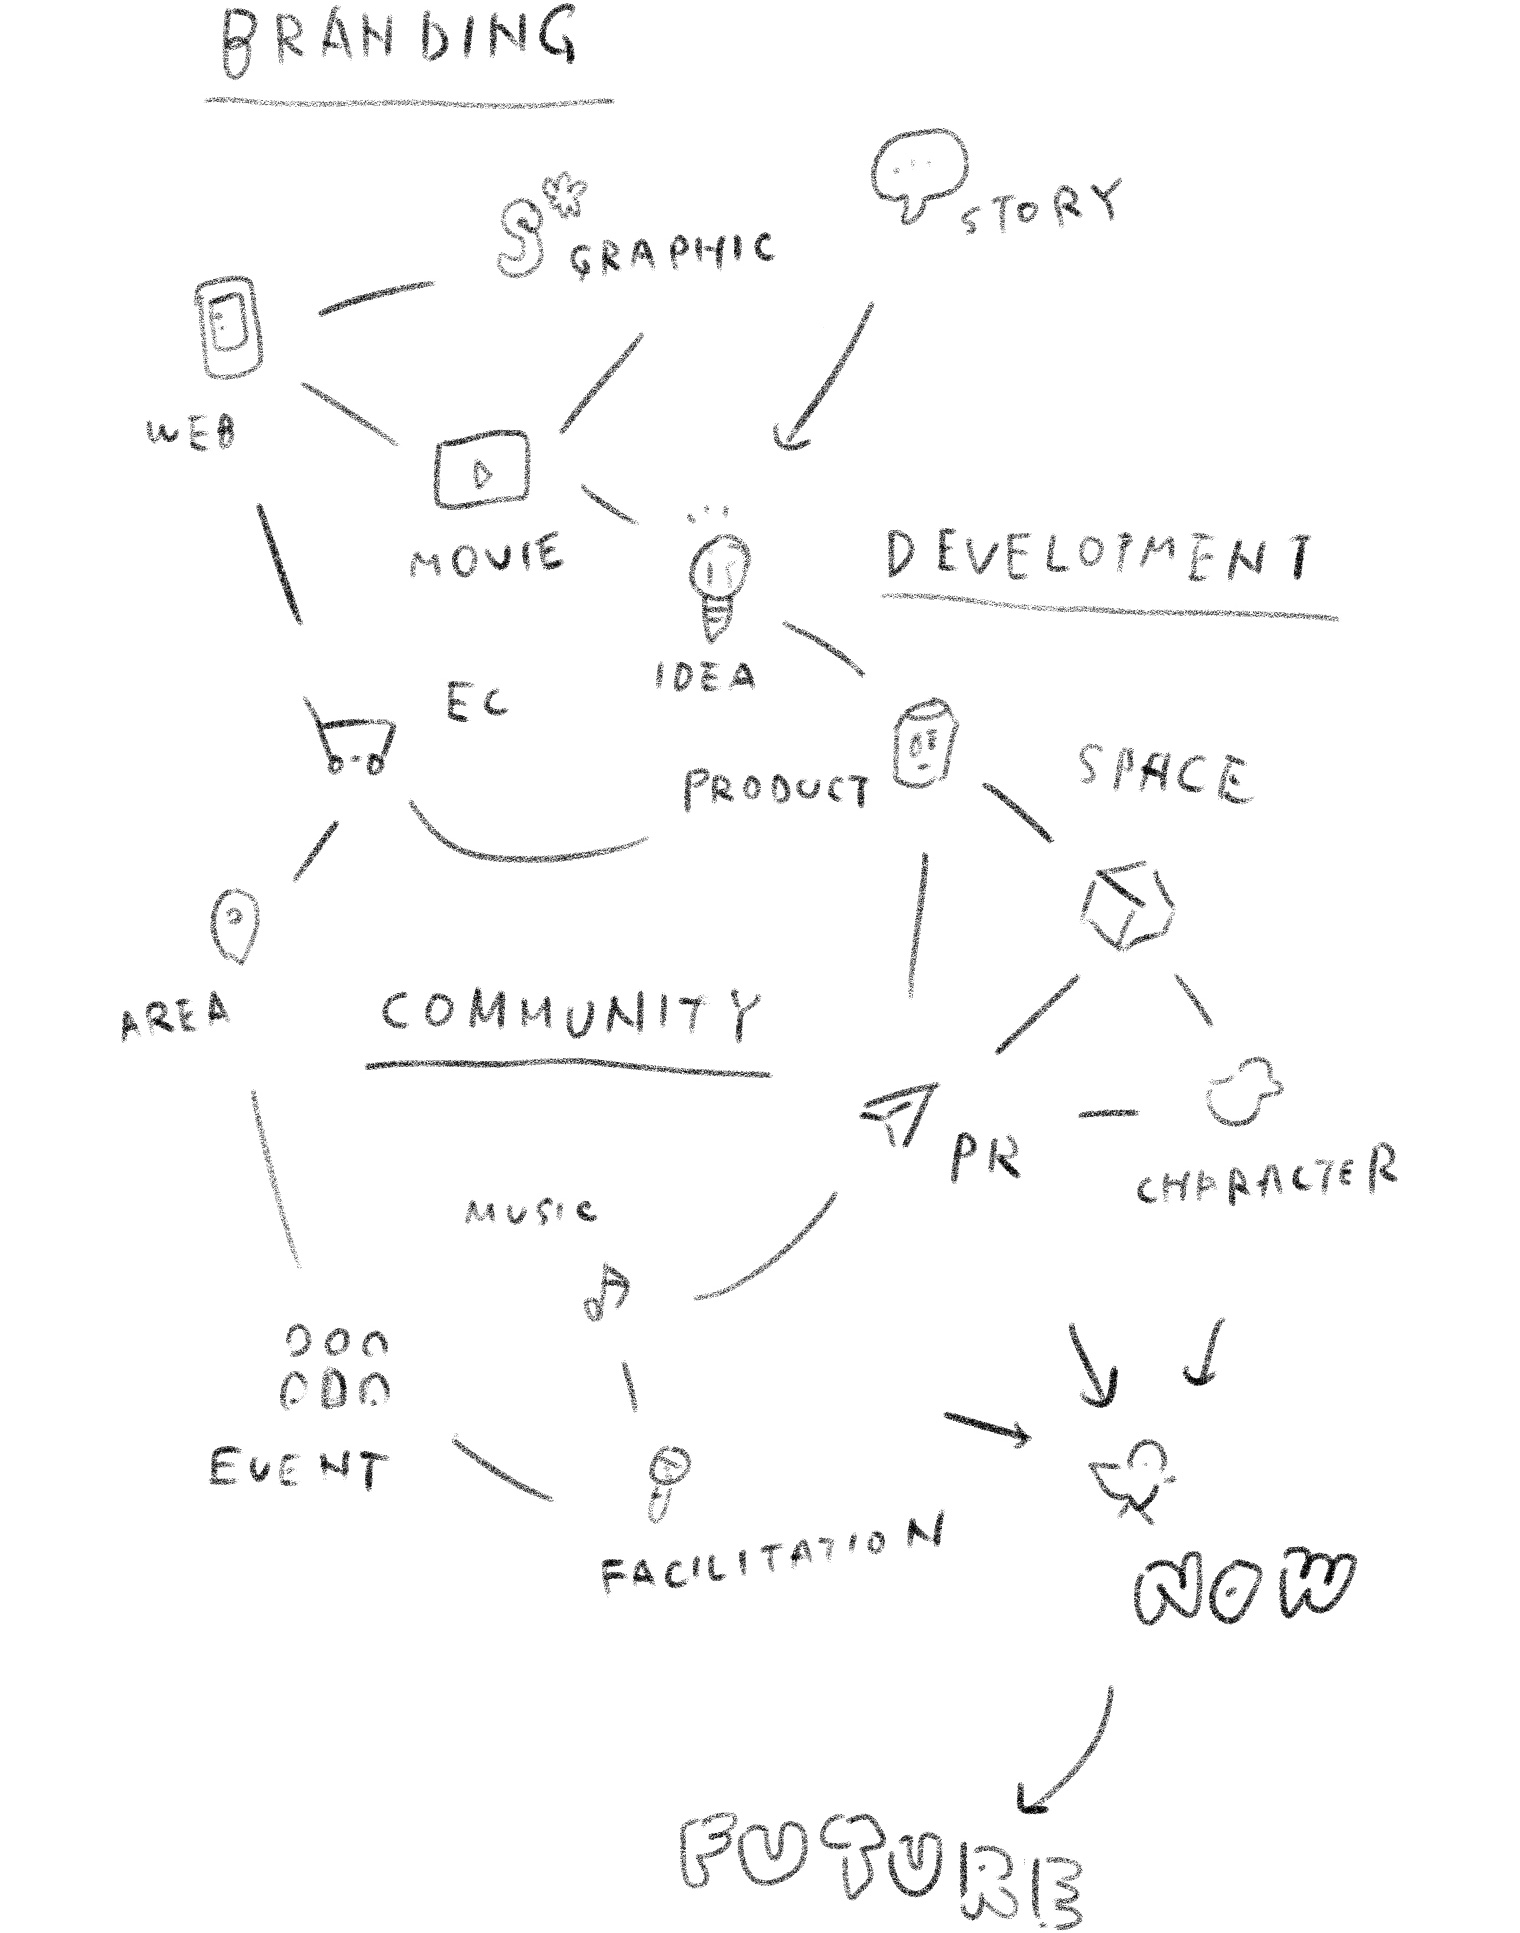 BRANDING
STORY
GRAPHIC
WEB
MOVIE
DEVELOPMENT
IDEA
EC
PRODUCT
SPACE
AREA
COMMUNITY
PR
CHARACTER
MUSIC
EVENT
FACILITATION
NOW
FUTURE